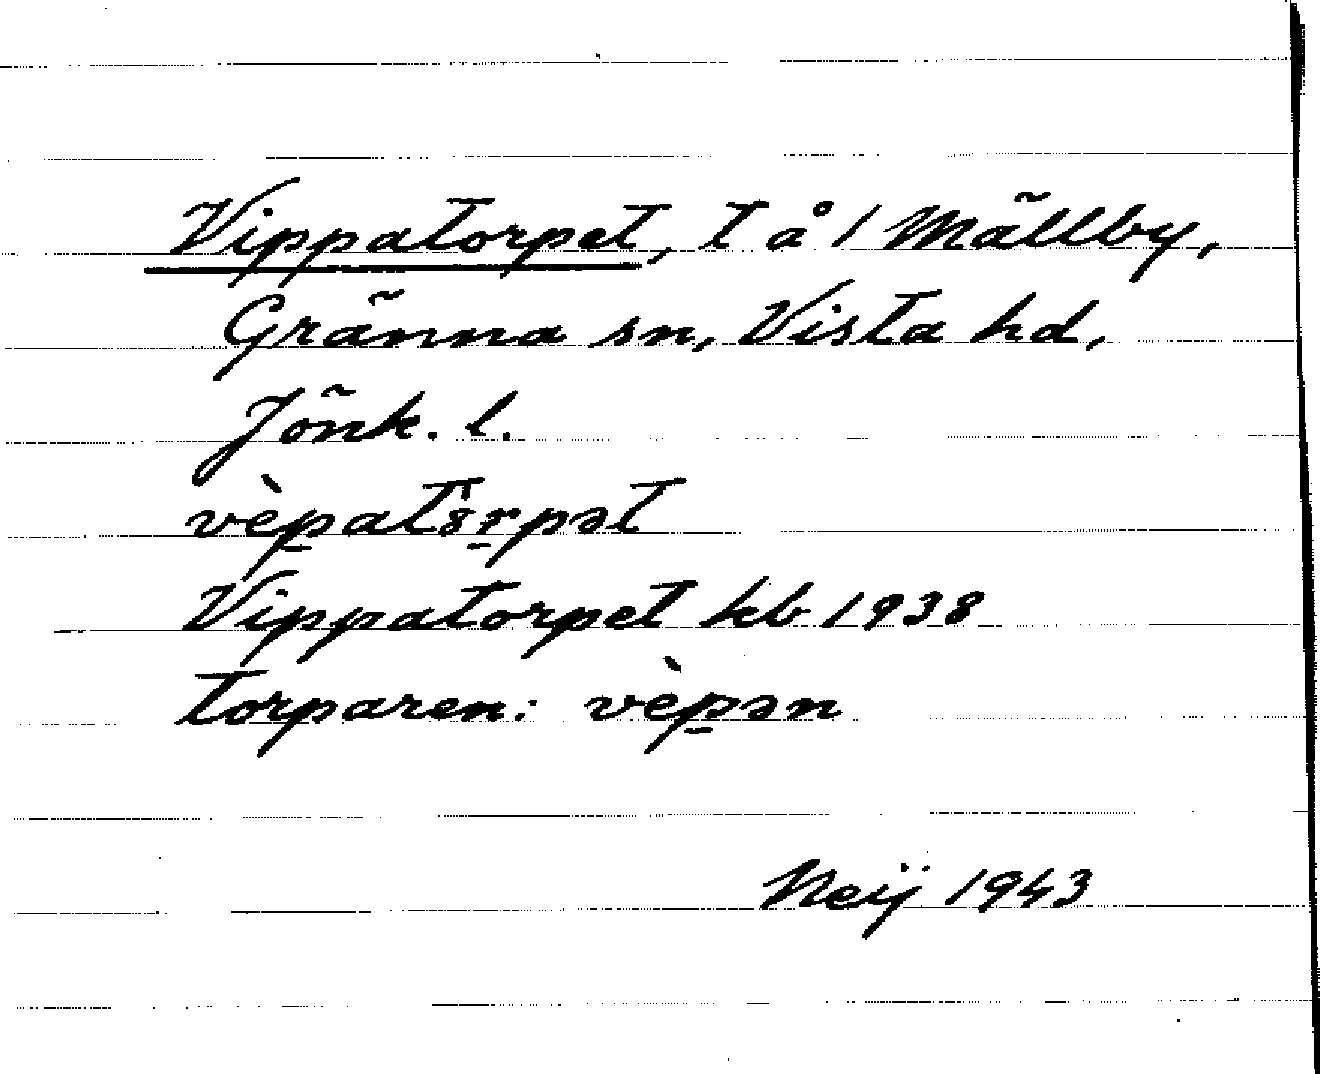 Vippatorpet, t å 1 Mällby,
Gränna sn, Vista hd,
Jönk. l.
vèp̱at8̂ṟpət
Vippatorpet kb 1938
torparen: vèp̱ən
Neij 1943